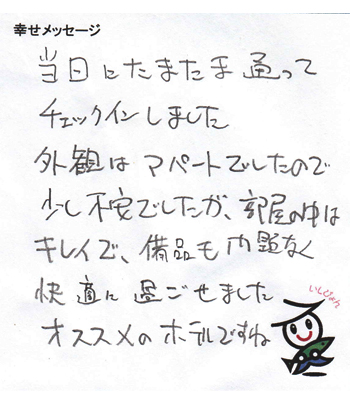 幸せメッセージ
当日にたまたま通って
チェックインしました
外観はアパートでしたので
少し不安でしたが、部屋の中は
キレイで、備品も問題なく
快適に過ごせました
オススメのホテルですね
いしぴょん